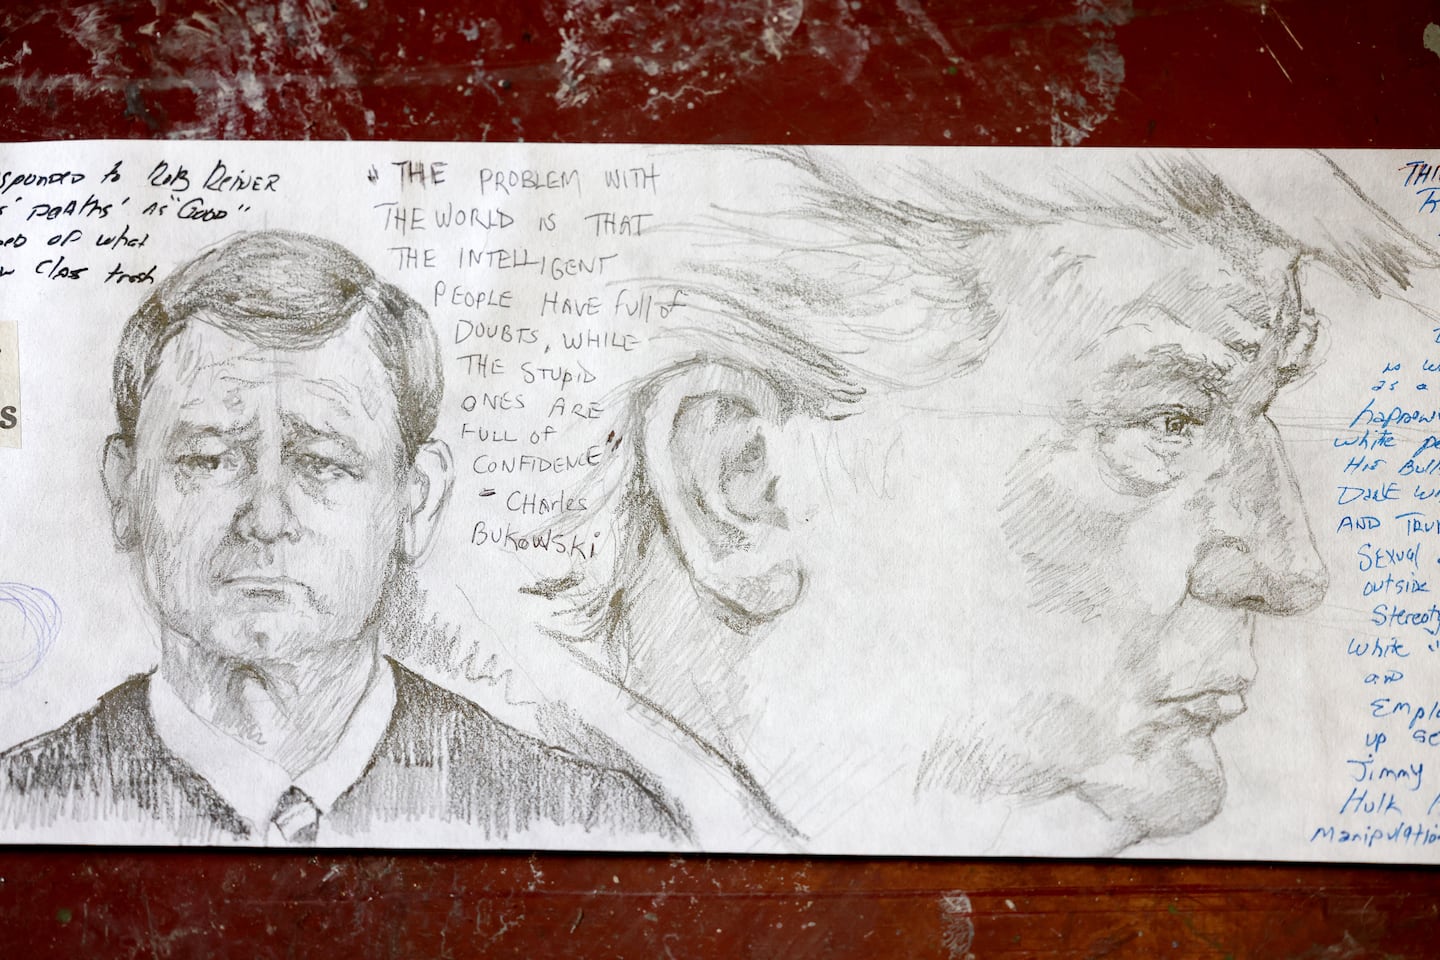 sponded to Rob Reiner
s' Deaths' as "Good"
ed of what
w class trash
s
" THE PROBLEM WITH
THE WORLD IS THAT
THE INTELLIGENT
PEOPLE HAVE full of
DOUBTS, WHILE
THE STUPID
ONES ARE
FULL of
CONFIDENCE"
- CHArles
BUKOWSKi
THI
as a
happen
white pe
His Bull
AND TRU
Sexual
outside
Stereoty
white "
and
Emplo
up se
Jimmy
Hulk H
manipulatio